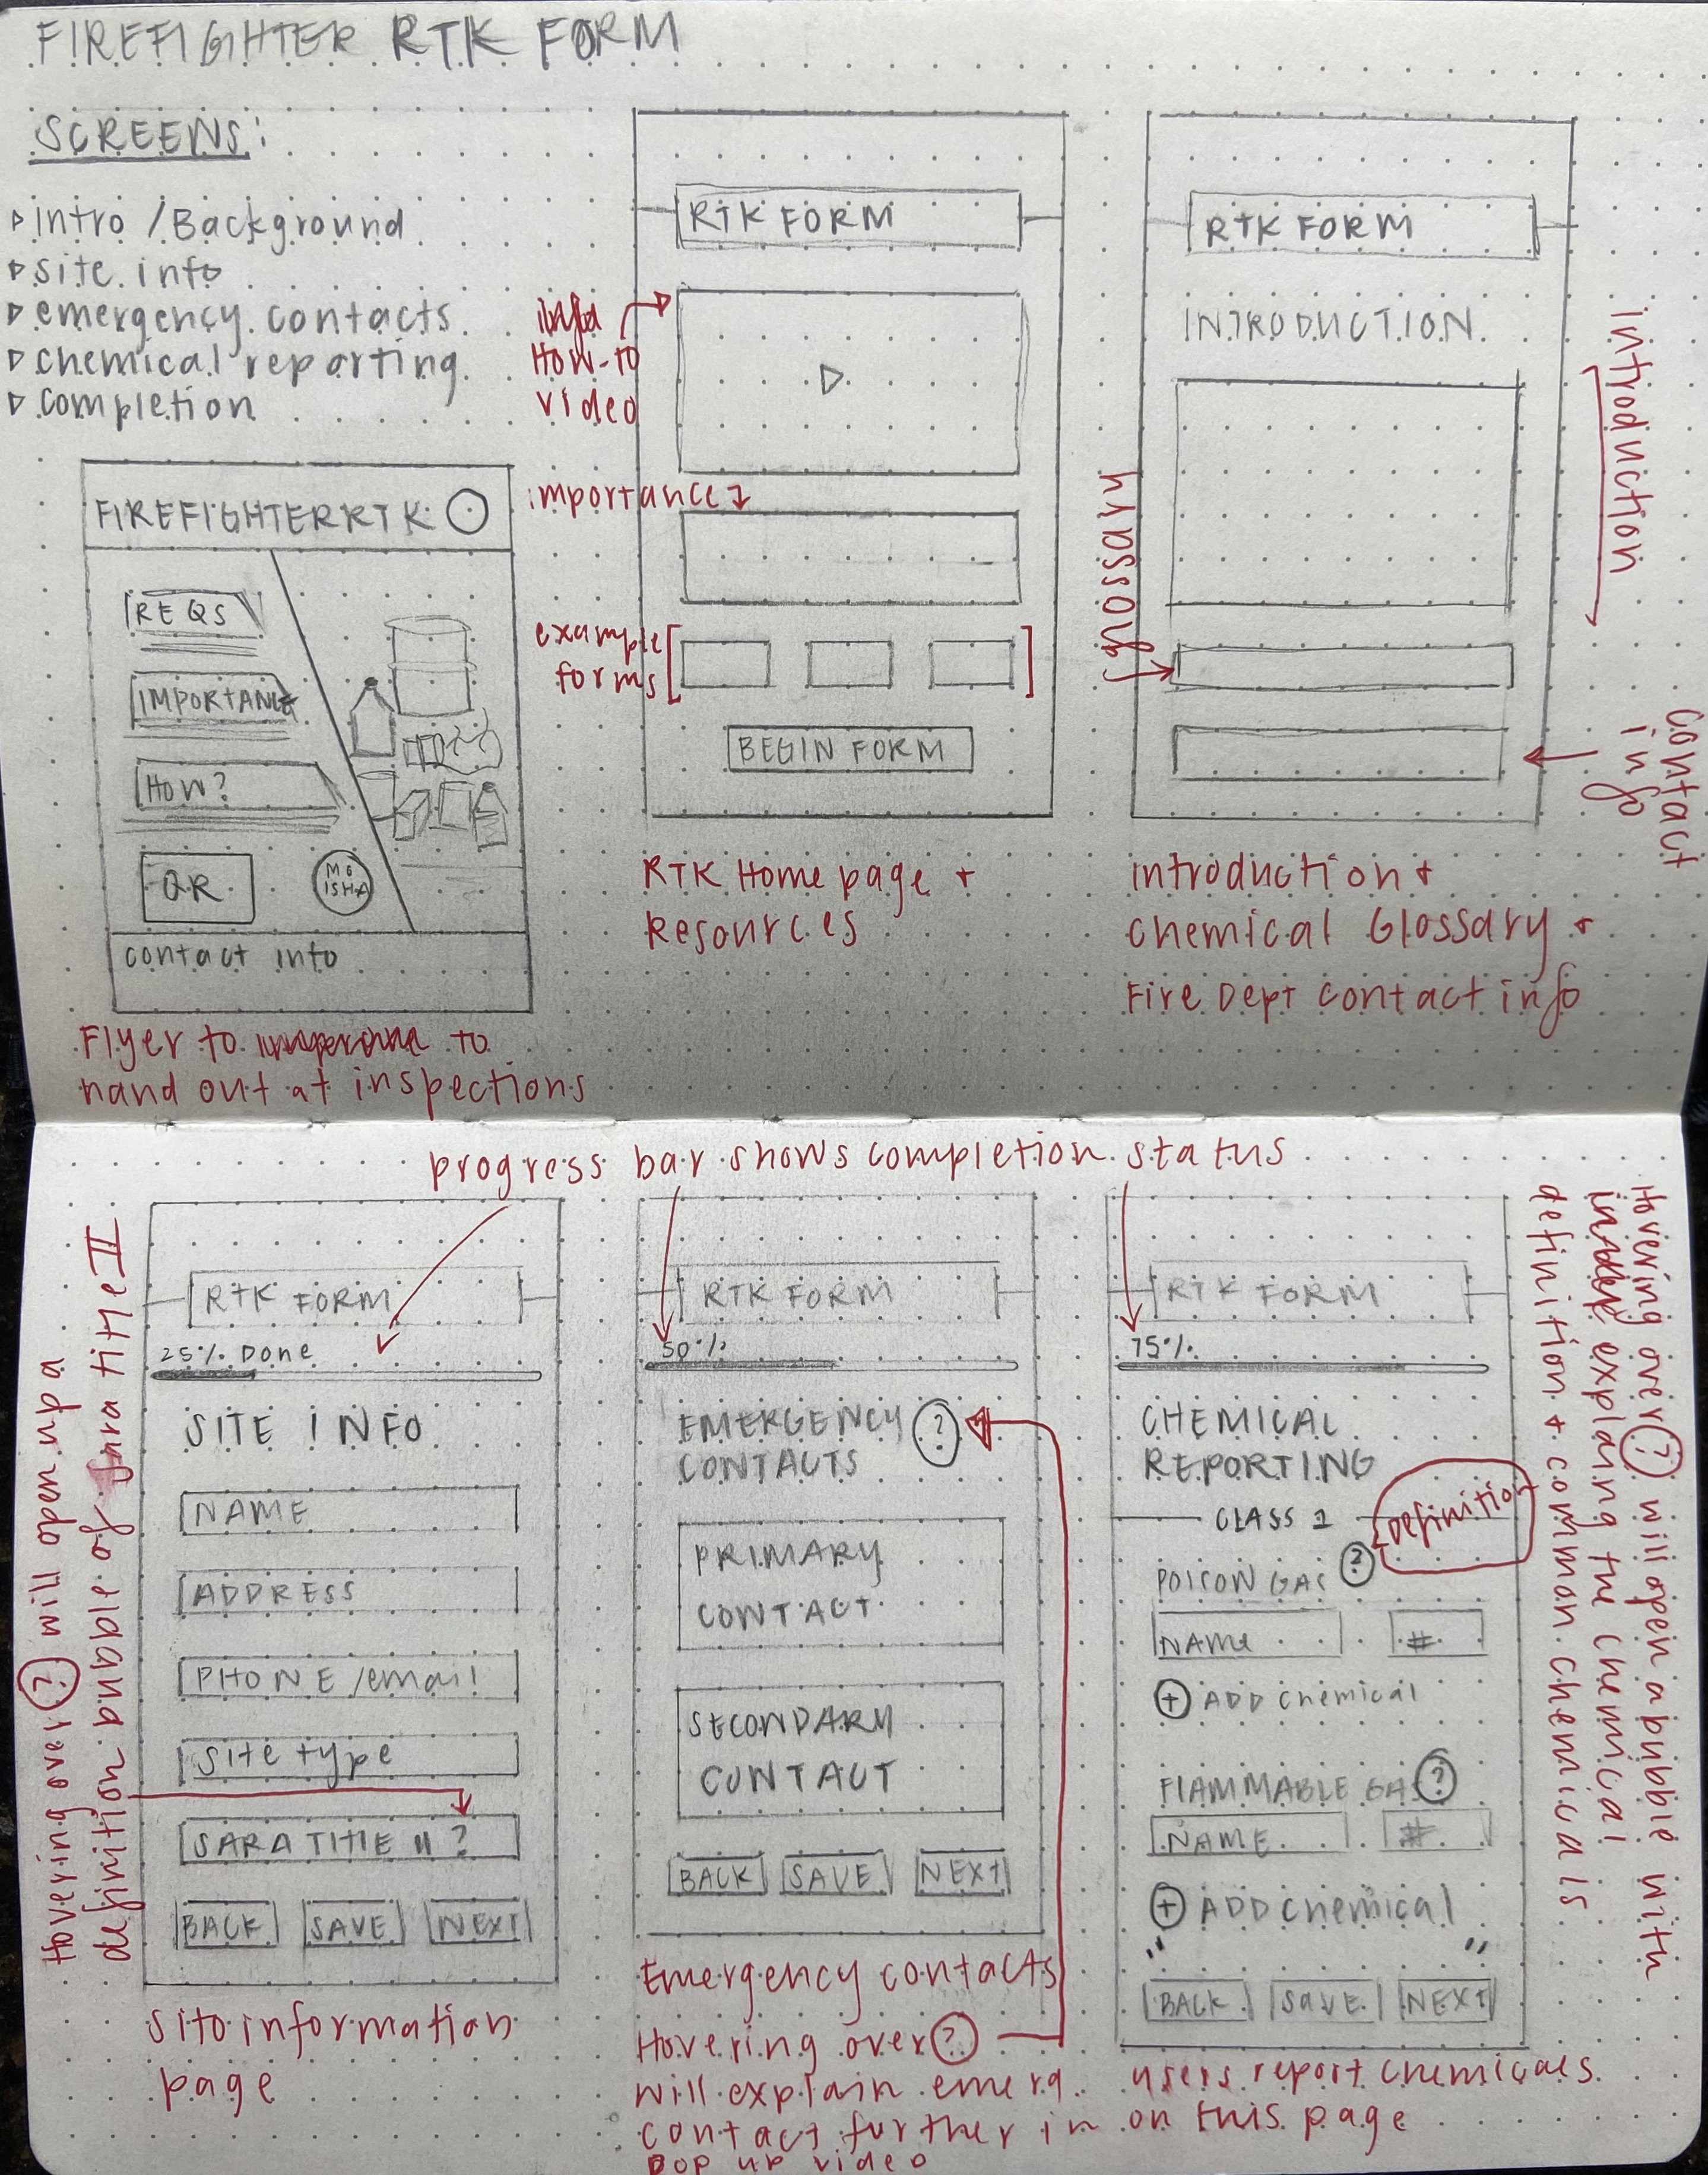 FIREFIGHTER RTK FORM
SCREENS:
▷ intro / Background
▷ site info
▷ emergency contacts
▷ chemical reporting
▷ completion
FIREFIGHTER RTK
REQS
IMPORTANCE
HOW?
QR
contact info
Flyer to
to
hand out at inspections
RTK FORM
How-to
video
importance
example
forms
BEGIN FORM
RTK Home page +
Resources
RTK FORM
INTRODUCTION
introduction
glossary
contact
info
introduction +
chemical Glossary +
Fire Dept contact info
progress bar shows completion status
RTK FORM
25% Done
SITE INFO
NAME
ADDRESS
PHONE /email
Site type
SARA TITLE II ?
BACK
SAVE
NEXT
Hovering over ? will open up a
definition bubble of Sara title II
Site information
page
RTK FORM
50%
EMERGENCY ?
CONTACTS
PRIMARY
CONTACT
SECONDARY
CONTACT
BACK
SAVE
NEXT
Emergency contacts
Hovering over ?
will explain emerg
contact further in
pop up video
RTK FORM
75%
CHEMICAL
REPORTING
CLASS 2
Definition
POISON GAS ?
NAME
#
+ ADD chemical
FLAMMABLE GAS ?
NAME
#
+ ADD chemical
" "
BACK
SAVE
NEXT
Hovering over ? will open a bubble with
explaining the chemical
definition + common chemicals
users report chemicals
on this page